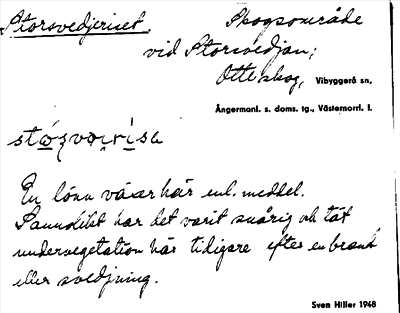 Storsvedjeriset. Skogsområde
vid Storsvedjan;
Otterskog, Vibyggerå sn,
Ångermanl. s. doms. tg., Västernorrl. l.
En lönn växer här enl. meddel.
Sannolikt har det varit snårig och tät
undervegetation här tidigare efter en brand
eller svedjning.
Sven Hiller 1948